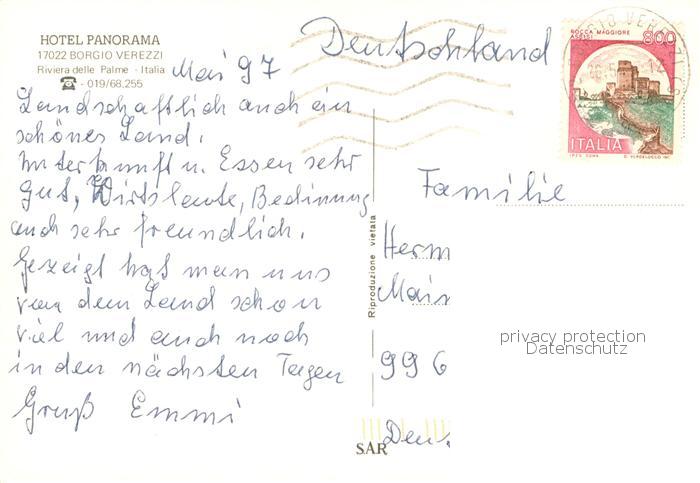 HOTEL PANORAMA
17022 BORGIO VEREZZI
Riviera delle Palme - Italia
☎ - 019/68.255
Mai 97
Landschaftlich auch ein
schönes Land.
Unterkunft u. Essen sehr
gut, Wirtsleute, Bedinung
auch sehr freundlich.
Gezeigt hat man uns
von dem Land schon
viel und auch noch
in den nächsten Tagen
Gruß Emmi
Riproduzione vietata
SAR
Deutschland
ROCCA MAGGIORE
ASSISI
800
ITALIA
BORGIO VEREZZI
Familie
Herm
Main
996
Deu
privacy protection
Datenschutz